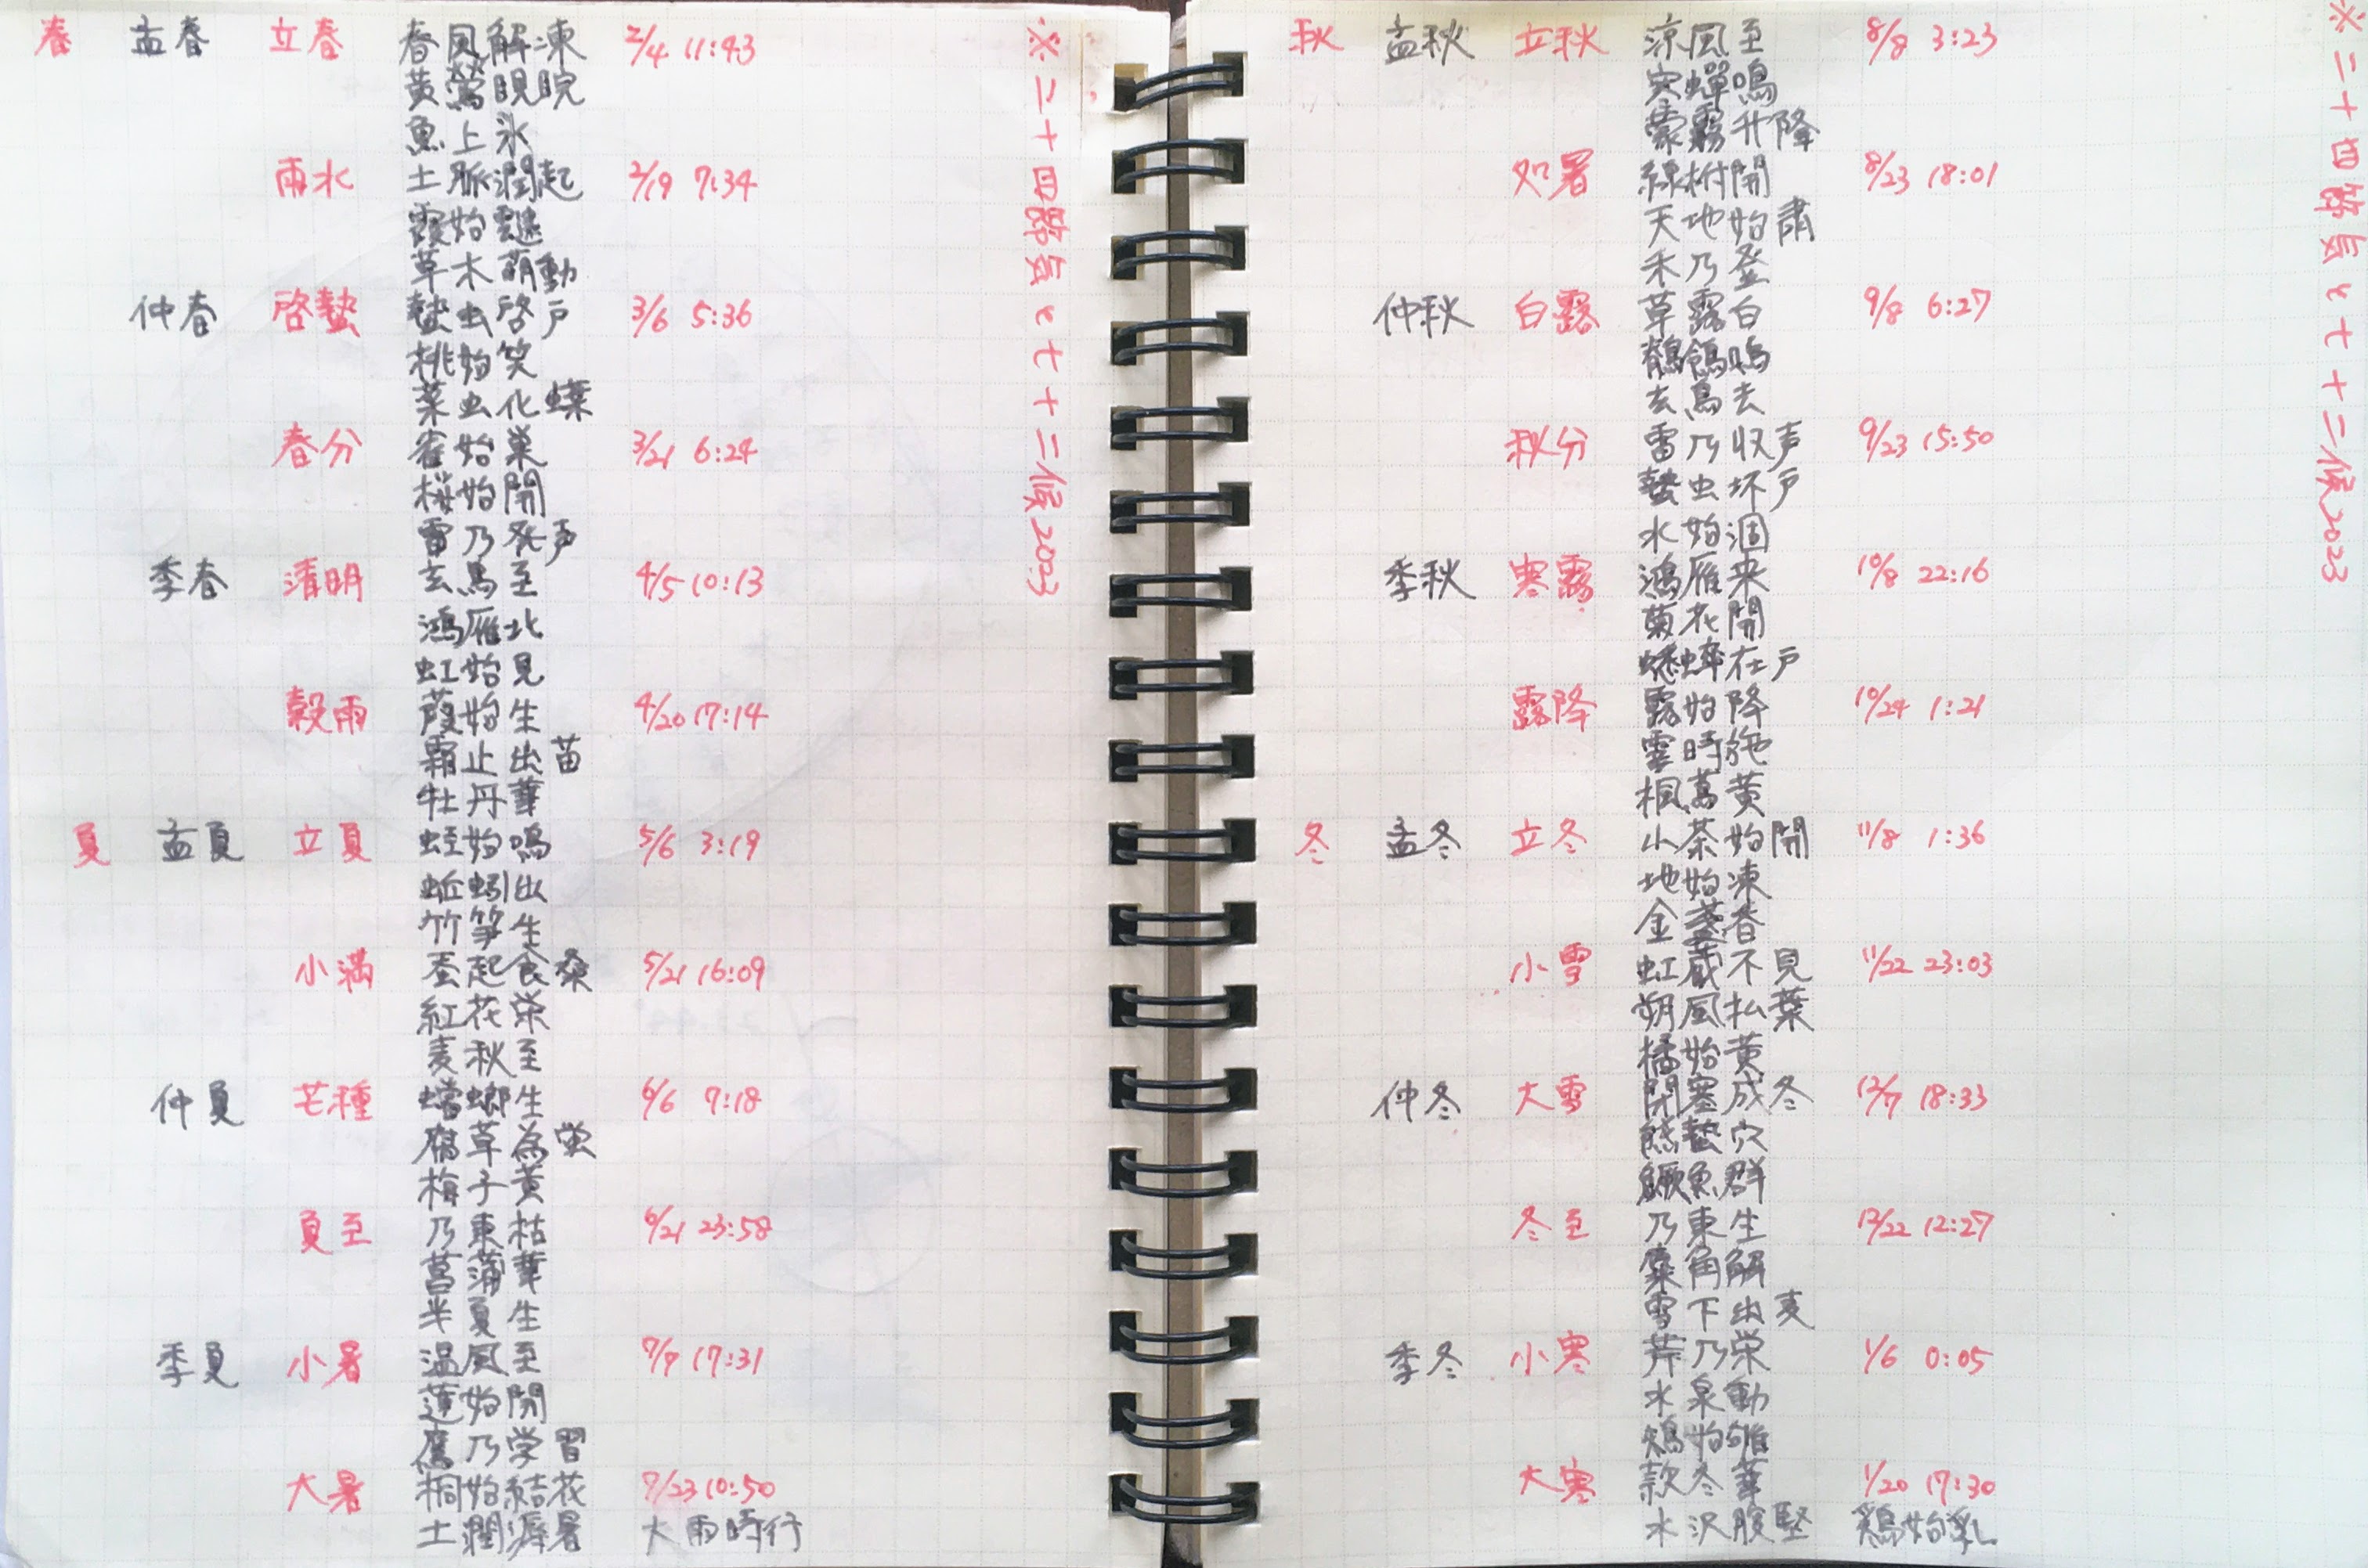 ※二十四節気と七十二候2023
春 孟春 立春 春風解凍 2/4 11:43
黄鶯睍睆
魚上氷
雨水 土脈潤起 2/19 7:34
霞始靆
草木萌動
仲春 啓蟄 蟄虫啓戸 3/6 5:36
桃始笑
菜虫化蝶
春分 雀始巣 3/21 6:24
桜始開
雷乃発声
季春 清明 玄鳥至 4/5 10:13
鴻雁北
虹始見
穀雨 葭始生 4/20 17:14
霜止出苗
牡丹華
夏 孟夏 立夏 蛙始鳴 5/6 3:19
蚯蚓出
竹笋生
小満 蚕起食桑 5/21 16:09
紅花栄
麦秋至
仲夏 芒種 蟷螂生 6/6 7:18
腐草為蛍
梅子黄
夏至 乃東枯 6/21 23:58
菖蒲華
半夏生
季夏 小暑 温風至 7/7 17:31
蓮始開
鷹乃学習
大暑 桐始結花 7/23 10:50
土潤溽暑 大雨時行
※二十四節気と七十二候2023
秋 孟秋 立秋 涼風至 8/8 3:23
寒蝉鳴
蒙霧升降
処暑 綿柎開 8/23 18:01
天地始粛
禾乃登
仲秋 白露 草露白 9/8 6:27
鶺鴒鳴
玄鳥去
秋分 雷乃収声 9/23 15:50
蟄虫坏戸
水始涸
季秋 寒露 鴻雁来 10/8 22:16
菊花開
蟋蟀在戸
露降 露始降 10/24 1:21
霎時施
楓蔦黄
冬 孟冬 立冬 山茶始開 11/8 1:36
地始凍
金盞香
小雪 虹蔵不見 11/22 23:03
朔風払葉
橘始黄
仲冬 大雪 閉塞成冬 12/7 18:33
熊蟄穴
鱖魚群
冬至 乃東生 12/22 12:27
麋角解
雪下出麦
季冬 小寒 芹乃栄 1/6 0:05
水泉動
雉始雊
大寒 款冬華 1/20 17:30
水沢腹堅 鶏始乳